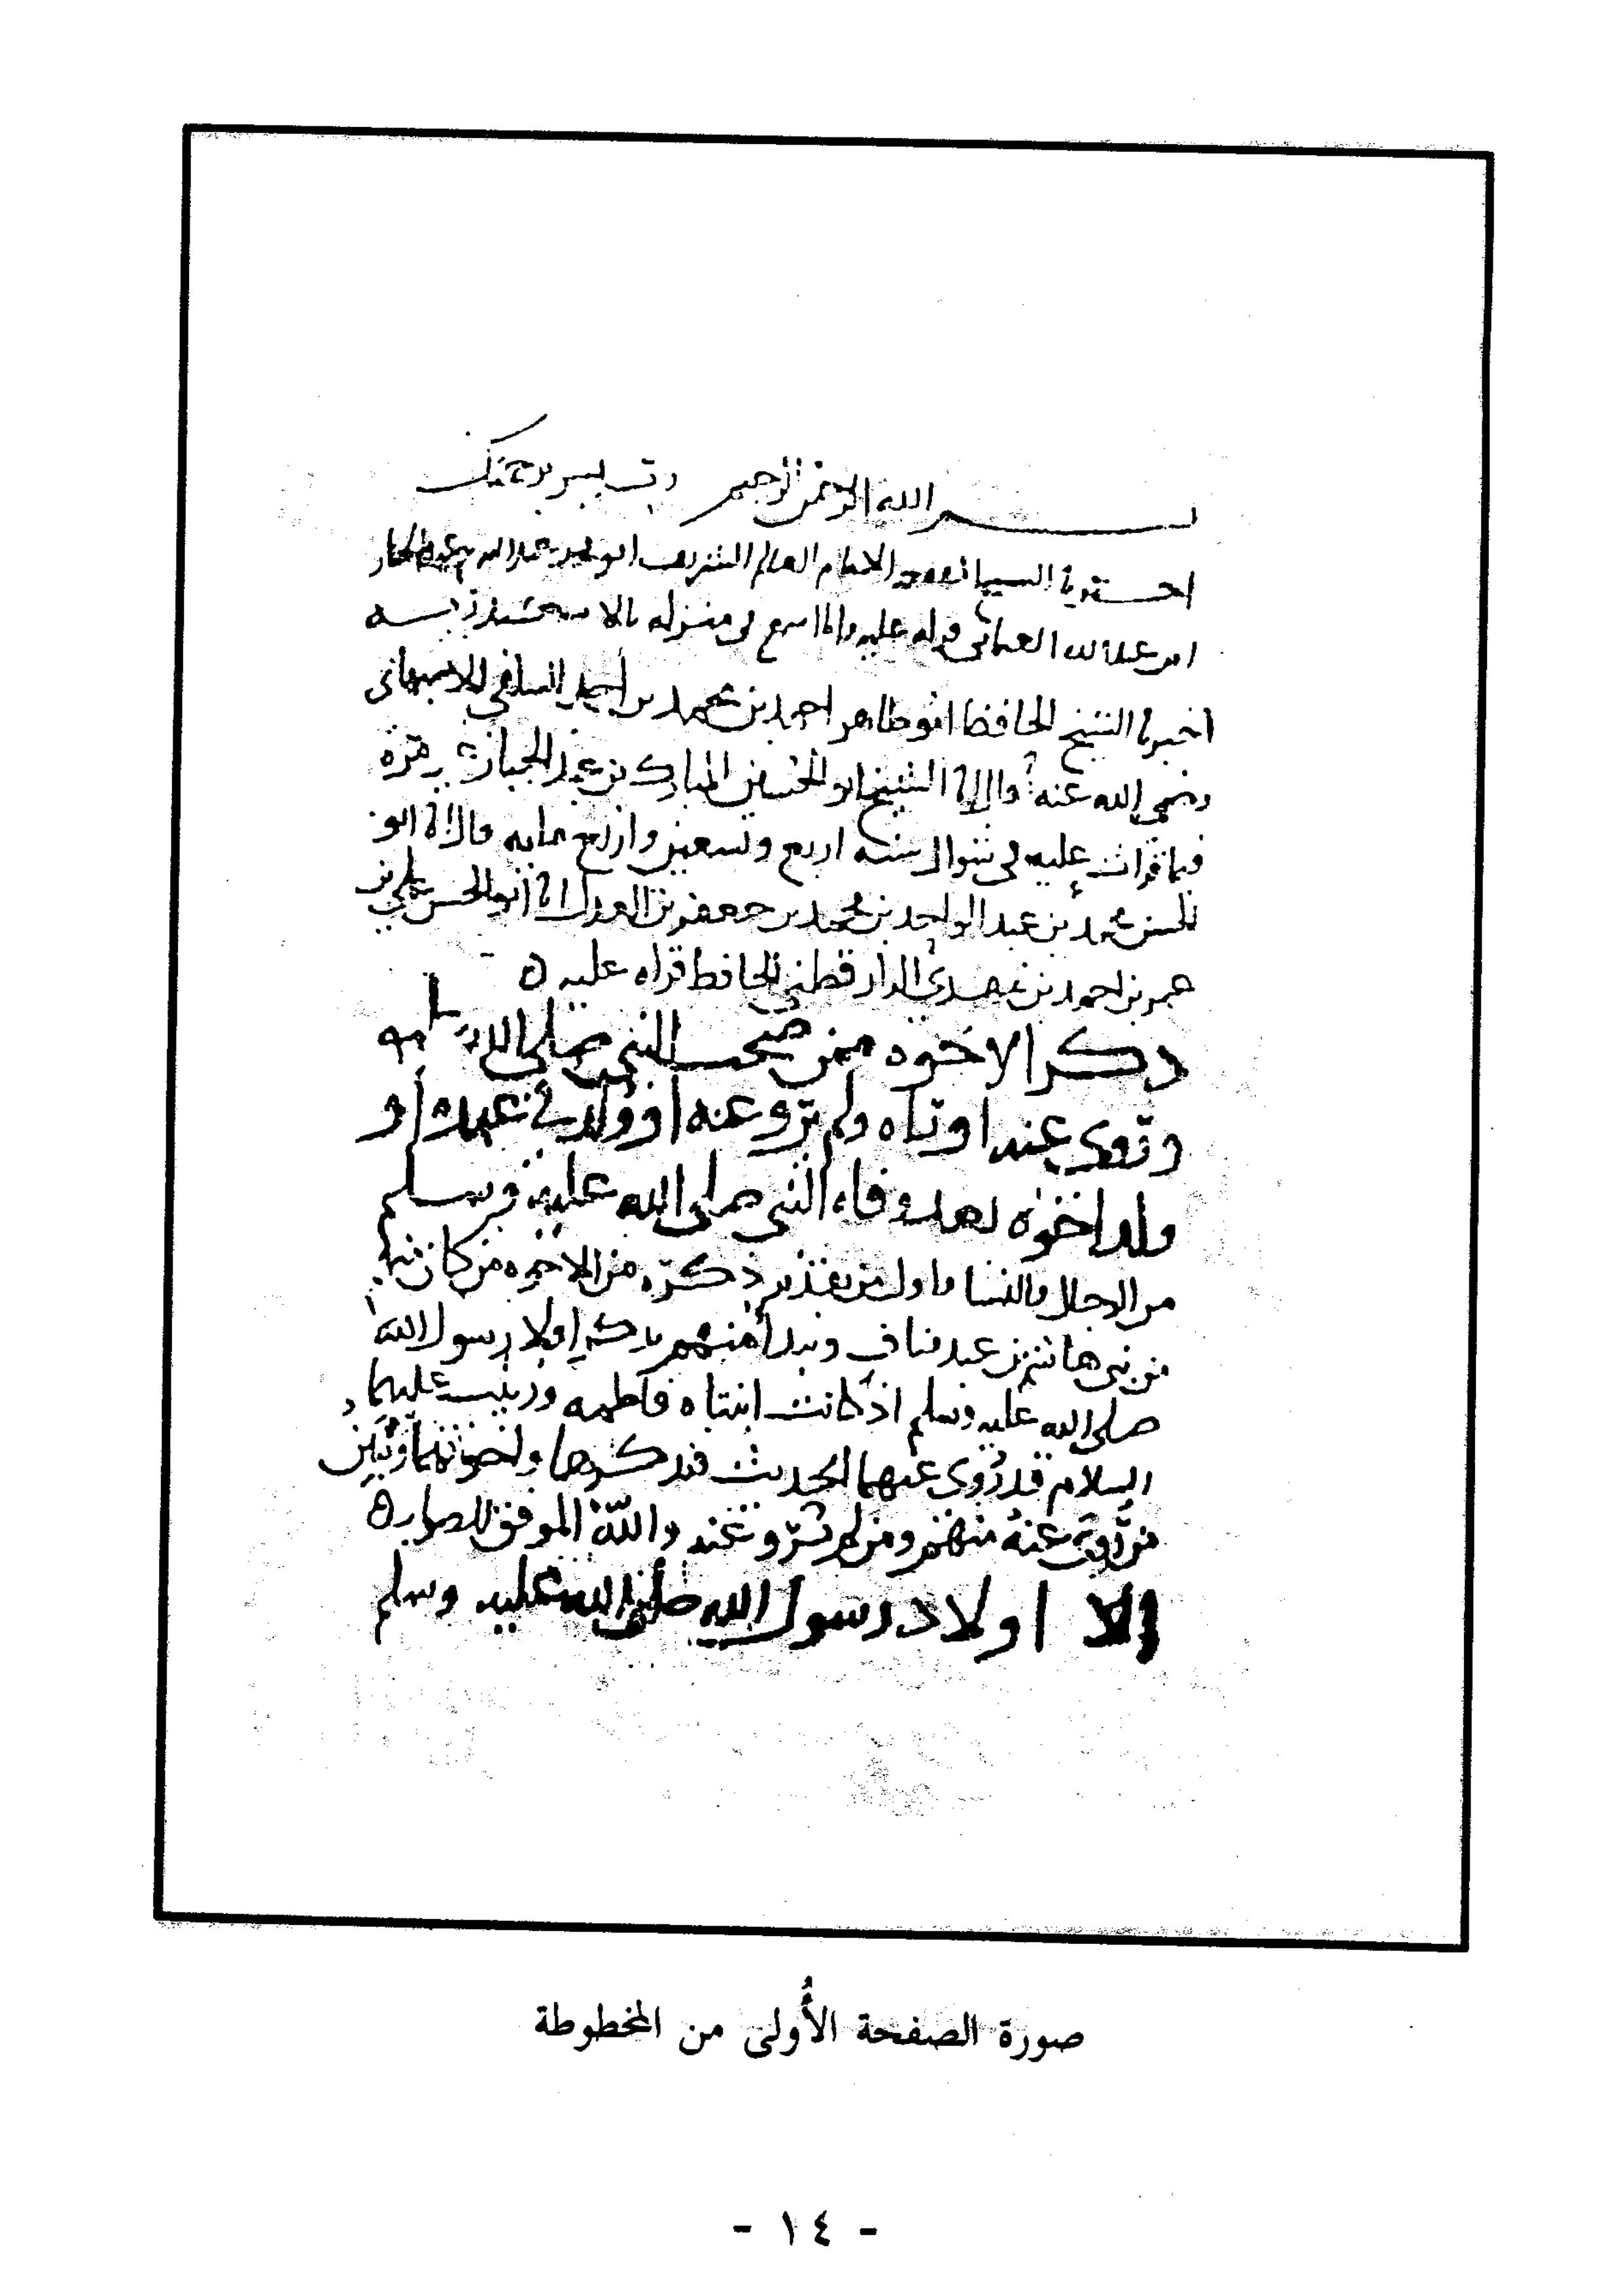 بسم الله الرحمن الرحيم رب يسر برحمتك
الامام العالم الشريف ابو محمد عبد الله بن عبد الجبار
ابن عبد الله العثماني قراه عليه وانا اسمع في منزله بالاسكندريه
اخبرنا الشيخ الحافظ ابو طاهر احمد بن محمد بن احمد السلفي الاصبهاني
رضي الله عنه قال انا الشيخ ابو الحسين المبارك بن عبد الجبار
فيما قرات عليه في شوال سنه اربع وتسعين واربع مايه قال انا ابو
الحسن محمد بن عبد الواحد بن محمد بن جعفر بن العدل انا ابو الحسن علي بن
عمر بن احمد بن مهدي الدارقطني الحافظ قراه عليه ه
ذكر الاخوه ممن صحب النبي صلى الله
وروى عنه او راه ولم يرو عنه او ولد في عهده او
ولد اخوه بعد وفاه النبي صلى الله عليه وسلم
من الرجال والنسا واول من نقدم ذكره من الاخوه من كان منهم
من بني هاشم بن عبد مناف ونبدا منهم بذكر اولاد رسول الله
صلى الله عليه وسلم اذ كانت ابنتاه فاطمه وزينب عليهما
السلام قد روي عنهما الحديث فنذكرها واخوتهما ونبين
من روي عنه منهم ومن لم يرو عنه والله الموفق للصواب ه
اولاد رسول الله صلى الله عليه وسلم
صورة الصفحة الأولى من المخطوطة
- ١٤ -